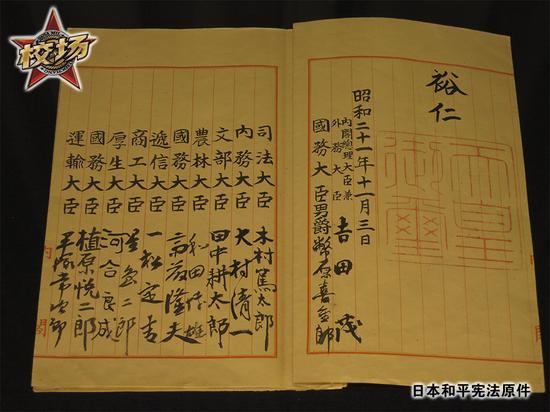 校场
裕仁
天皇御璽
昭和二十一年十一月三日
内閣總理大臣兼
外務大臣 吉田茂
國務大臣男爵幣原喜重郎
司法大臣 木村篤太郎
内務大臣 大村清一
文部大臣 田中耕太郎
農林大臣 和田博雄
國務大臣 斎藤隆夫
遞信大臣 一松定吉
商工大臣 星島二郎
厚生大臣 河合良成
國務大臣 植原悦二郎
運輸大臣 平塚常次郎
内閣
日本和平宪法原件